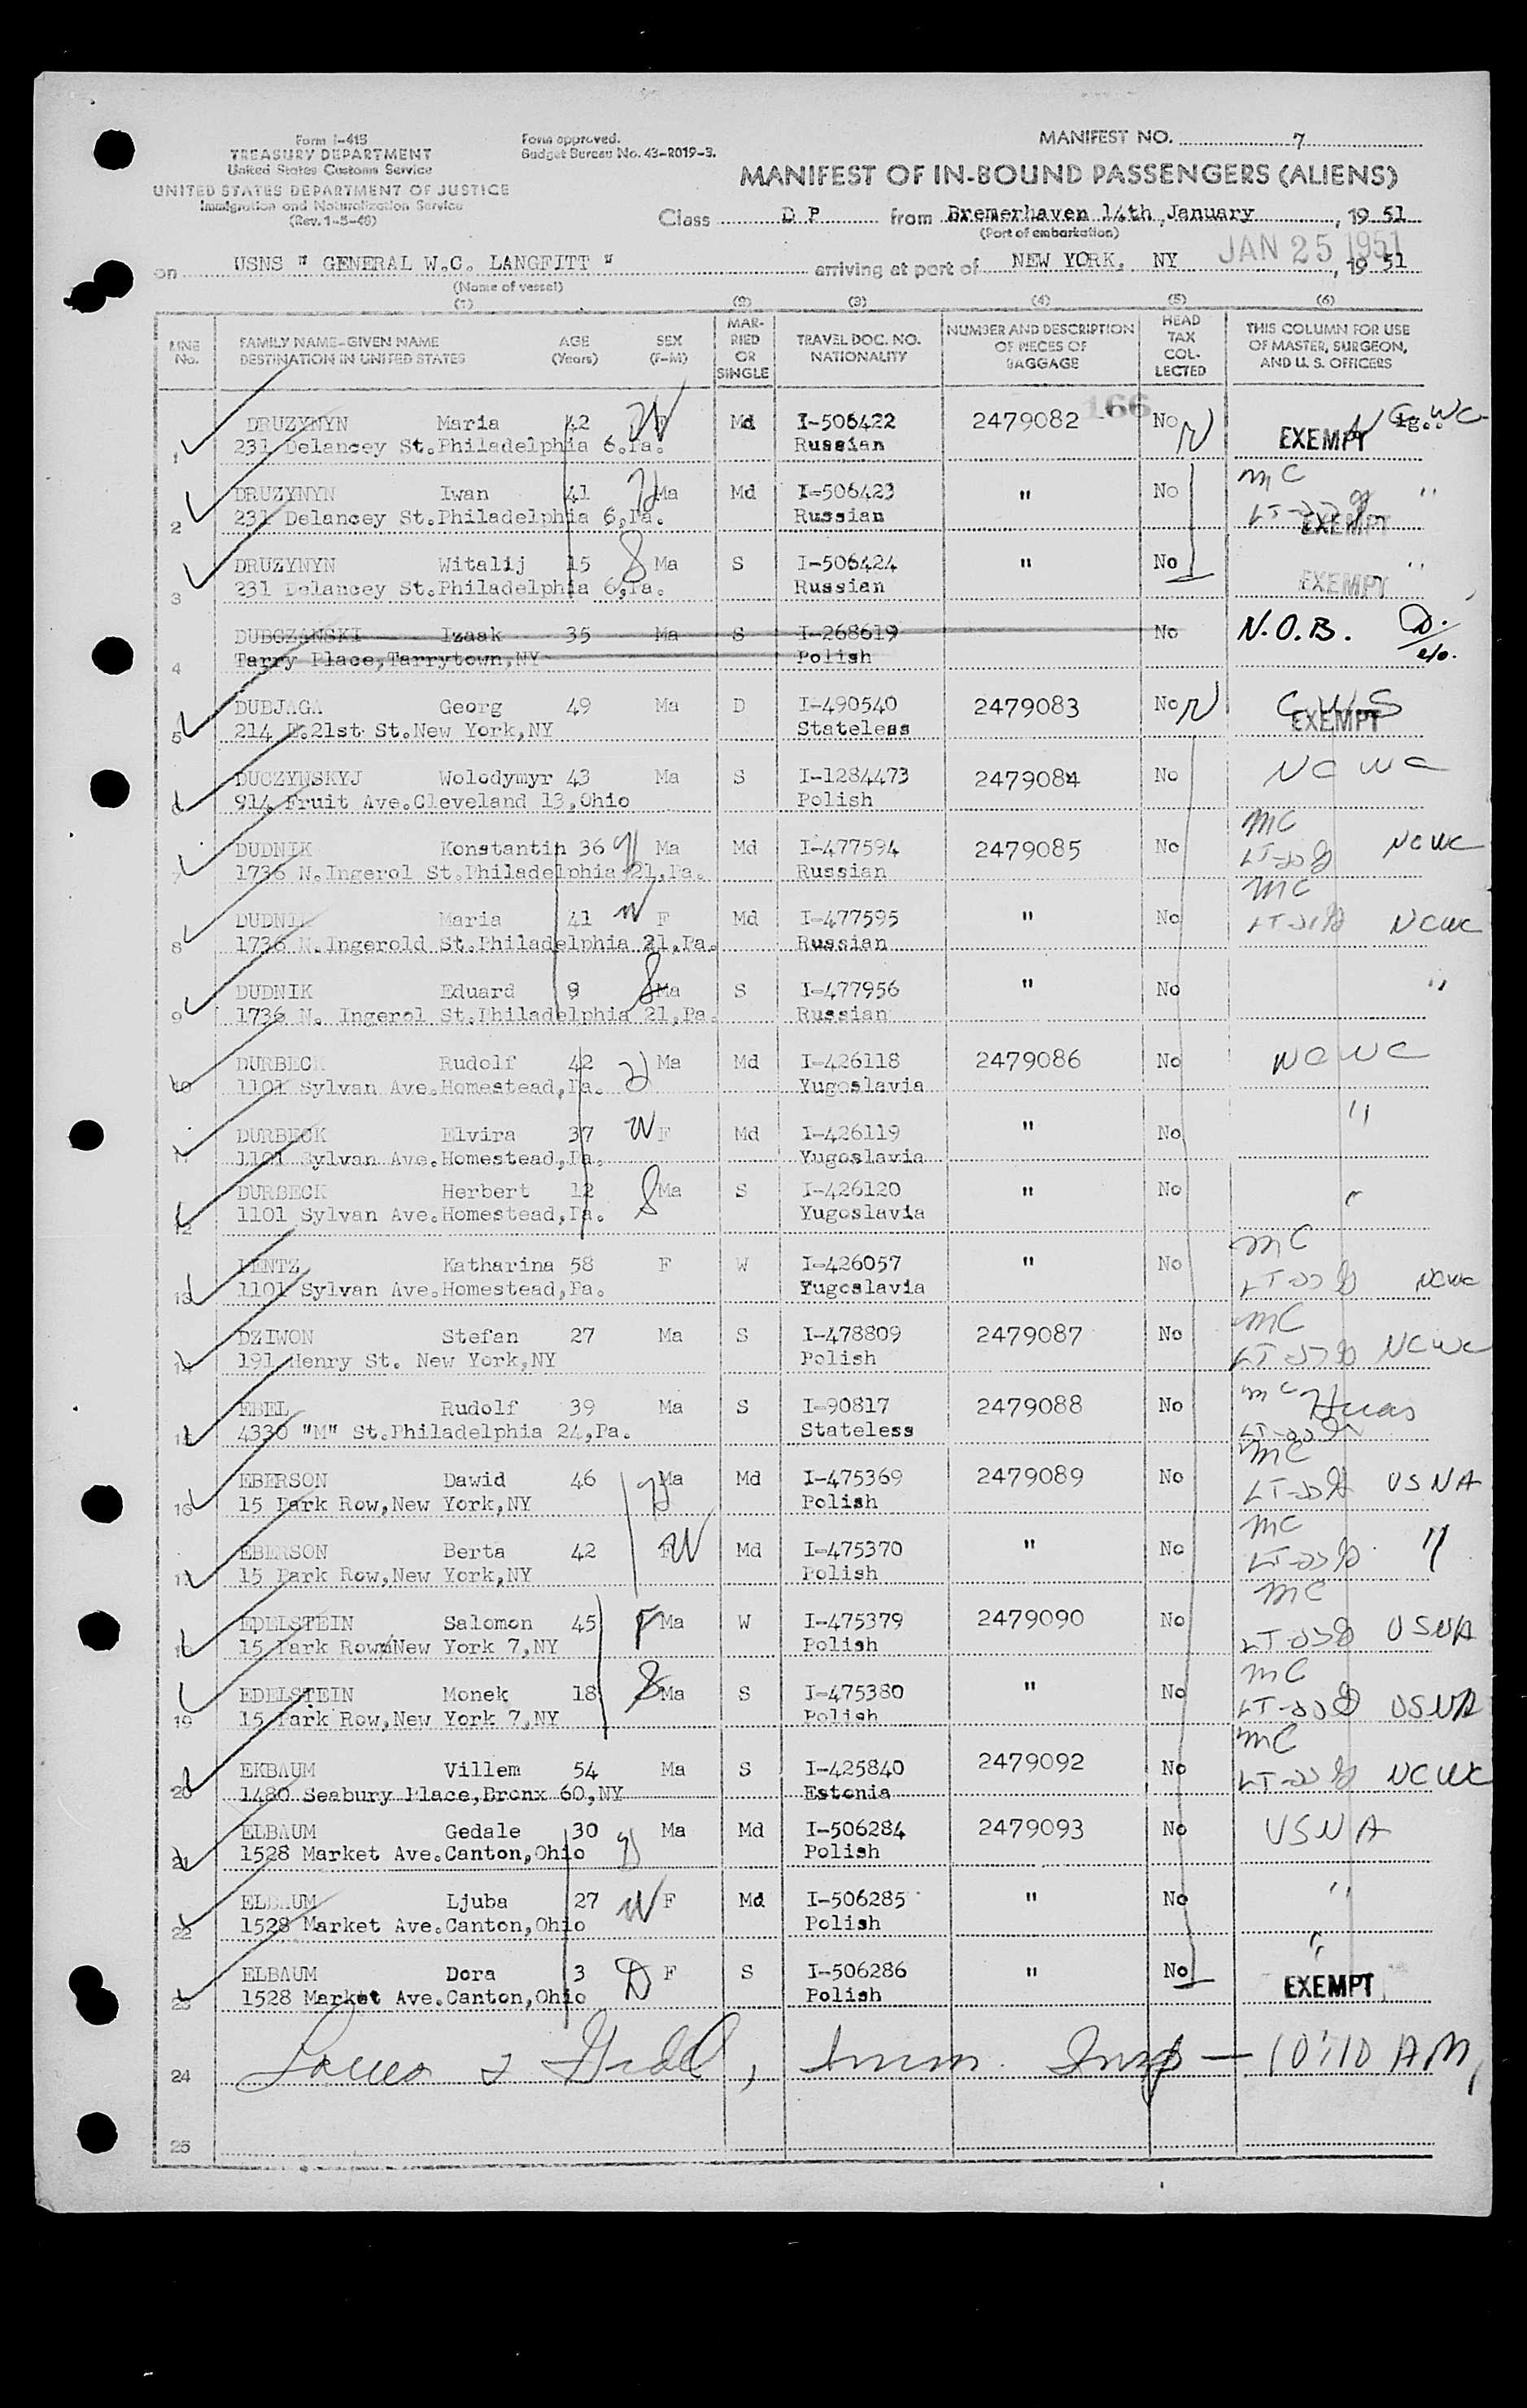 Form I-415
TREASURY DEPARTMENT
United States Customs Service
UNITED STATES DEPARTMENT OF JUSTICE
Immigration and Naturalization Service
(Rev. 1-5-48)
Form approved.
Budget Bureau No. 43-R019-3.
MANIFEST NO. 7
MANIFEST OF IN-BOUND PASSENGERS (ALIENS)
Class D P from Bremerhaven 14th January, 19 51
(Port of embarkation)
JAN 25 1951
on USNS " GENERAL W.C. LANGFITT " arriving at port of NEW YORK, NY, 19 51
(Name of vessel)
(1) (2) (3) (4) (5) (6)
LINE No. FAMILY NAME-GIVEN NAME DESTINATION IN UNITED STATES AGE (Years) SEX (F-M) MARRIED OR SINGLE TRAVEL DOC. NO. NATIONALITY NUMBER AND DESCRIPTION OF PIECES OF BAGGAGE HEAD TAX COLLECTED THIS COLUMN FOR USE OF MASTER, SURGEON, AND U. S. OFFICERS
166
1 DRUZYNYN Maria 42 W F Md I-506422 2479082 No
231 Delancey St.Philadelphia 6.Pa. Russian EXEMPT
2 DRUZYNYN Iwan 41 Ma Md I-506423 " No MC "
231 Delancey St.Philadelphia 6,Pa. Russian EXEMPT
3 DRUZYNYN Witalij 15 S Ma S I-506424 " No "
231 Delancey St.Philadelphia 6,Pa. Russian EXEMPT
4 DUBCZANSKI Izaak 35 Ma S I-268619 No N.O.B.
Tarry Place,Tarrytown,NY Polish
5 DUBJAGA Georg 49 Ma D I-490540 2479083 No CWS
214 E.21st St.New York,NY Stateless EXEMPT
6 DUCZYNSKYJ Wolodymyr 43 Ma S I-1284473 2479084 No NCWC
914 Fruit Ave.Cleveland 13,Ohio Polish
7 DUDNIK Konstantin 36 Ma Md I-477594 2479085 No MC NCWC
1736 N.Ingerol St.Philadelphia 21,Pa. Russian
8 DUDNIK Maria 41 W F Md I-477595 " No MC NCWC
1736 N.Ingerold St.Philadelphia 21,Pa. Russian
9 DUDNIK Eduard 9 S Ma S I-477956 " No "
1736 N. Ingerol St.Philadelphia 21,Pa. Russian
10 DURBECK Rudolf 42 Ma Md I-426118 2479086 No NCWC
1101 Sylvan Ave.Homestead,Pa. Yugoslavia
11 DURBECK Elvira 37 W F Md I-426119 " No "
1101 Sylvan Ave.Homestead,Pa. Yugoslavia
12 DURBECK Herbert 12 S Ma S I-426120 " No "
1101 Sylvan Ave.Homestead,Pa. Yugoslavia
13 LENTZ Katharina 58 F W I-426057 " No MC NCWC
1101 Sylvan Ave.Homestead,Pa. Yugoslavia
14 DZIWON Stefan 27 Ma S I-478809 2479087 No MC NCWC
191 Henry St. New York,NY Polish
15 EBEL Rudolf 39 Ma S I-90817 2479088 No MC Hias
4330 "M" St.Philadelphia 24,Pa. Stateless
16 EBERSON Dawid 46 Ma Md I-475369 2479089 No MC USNA
15 Park Row,New York,NY Polish
17 EBERSON Berta 42 W F Md I-475370 " No MC "
15 Park Row,New York,NY Polish
18 EDELSTEIN Salomon 45 F Ma W I-475379 2479090 No MC USNA
15 Park Row,New York 7,NY Polish
19 EDELSTEIN Monek 18 S Ma S I-475380 " No MC USNA
15 Park Row,New York 7,NY Polish
20 EKBAUM Villem 54 Ma S I-425840 2479092 No MC NCWC
1480 Seabury Place,Bronx 60,NY Estonia
21 ELBAUM Gedale 30 Ma Md I-506284 2479093 No USNA
1528 Market Ave.Canton,Ohio Polish
22 ELBAUM Ljuba 27 W F Md I-506285 " No "
1528 Market Ave.Canton,Ohio Polish
23 ELBAUM Dora 3 D F S I-506286 " No "
1528 Market Ave.Canton,Ohio Polish EXEMPT
24 Imm. Insp — 10:10 AM
25